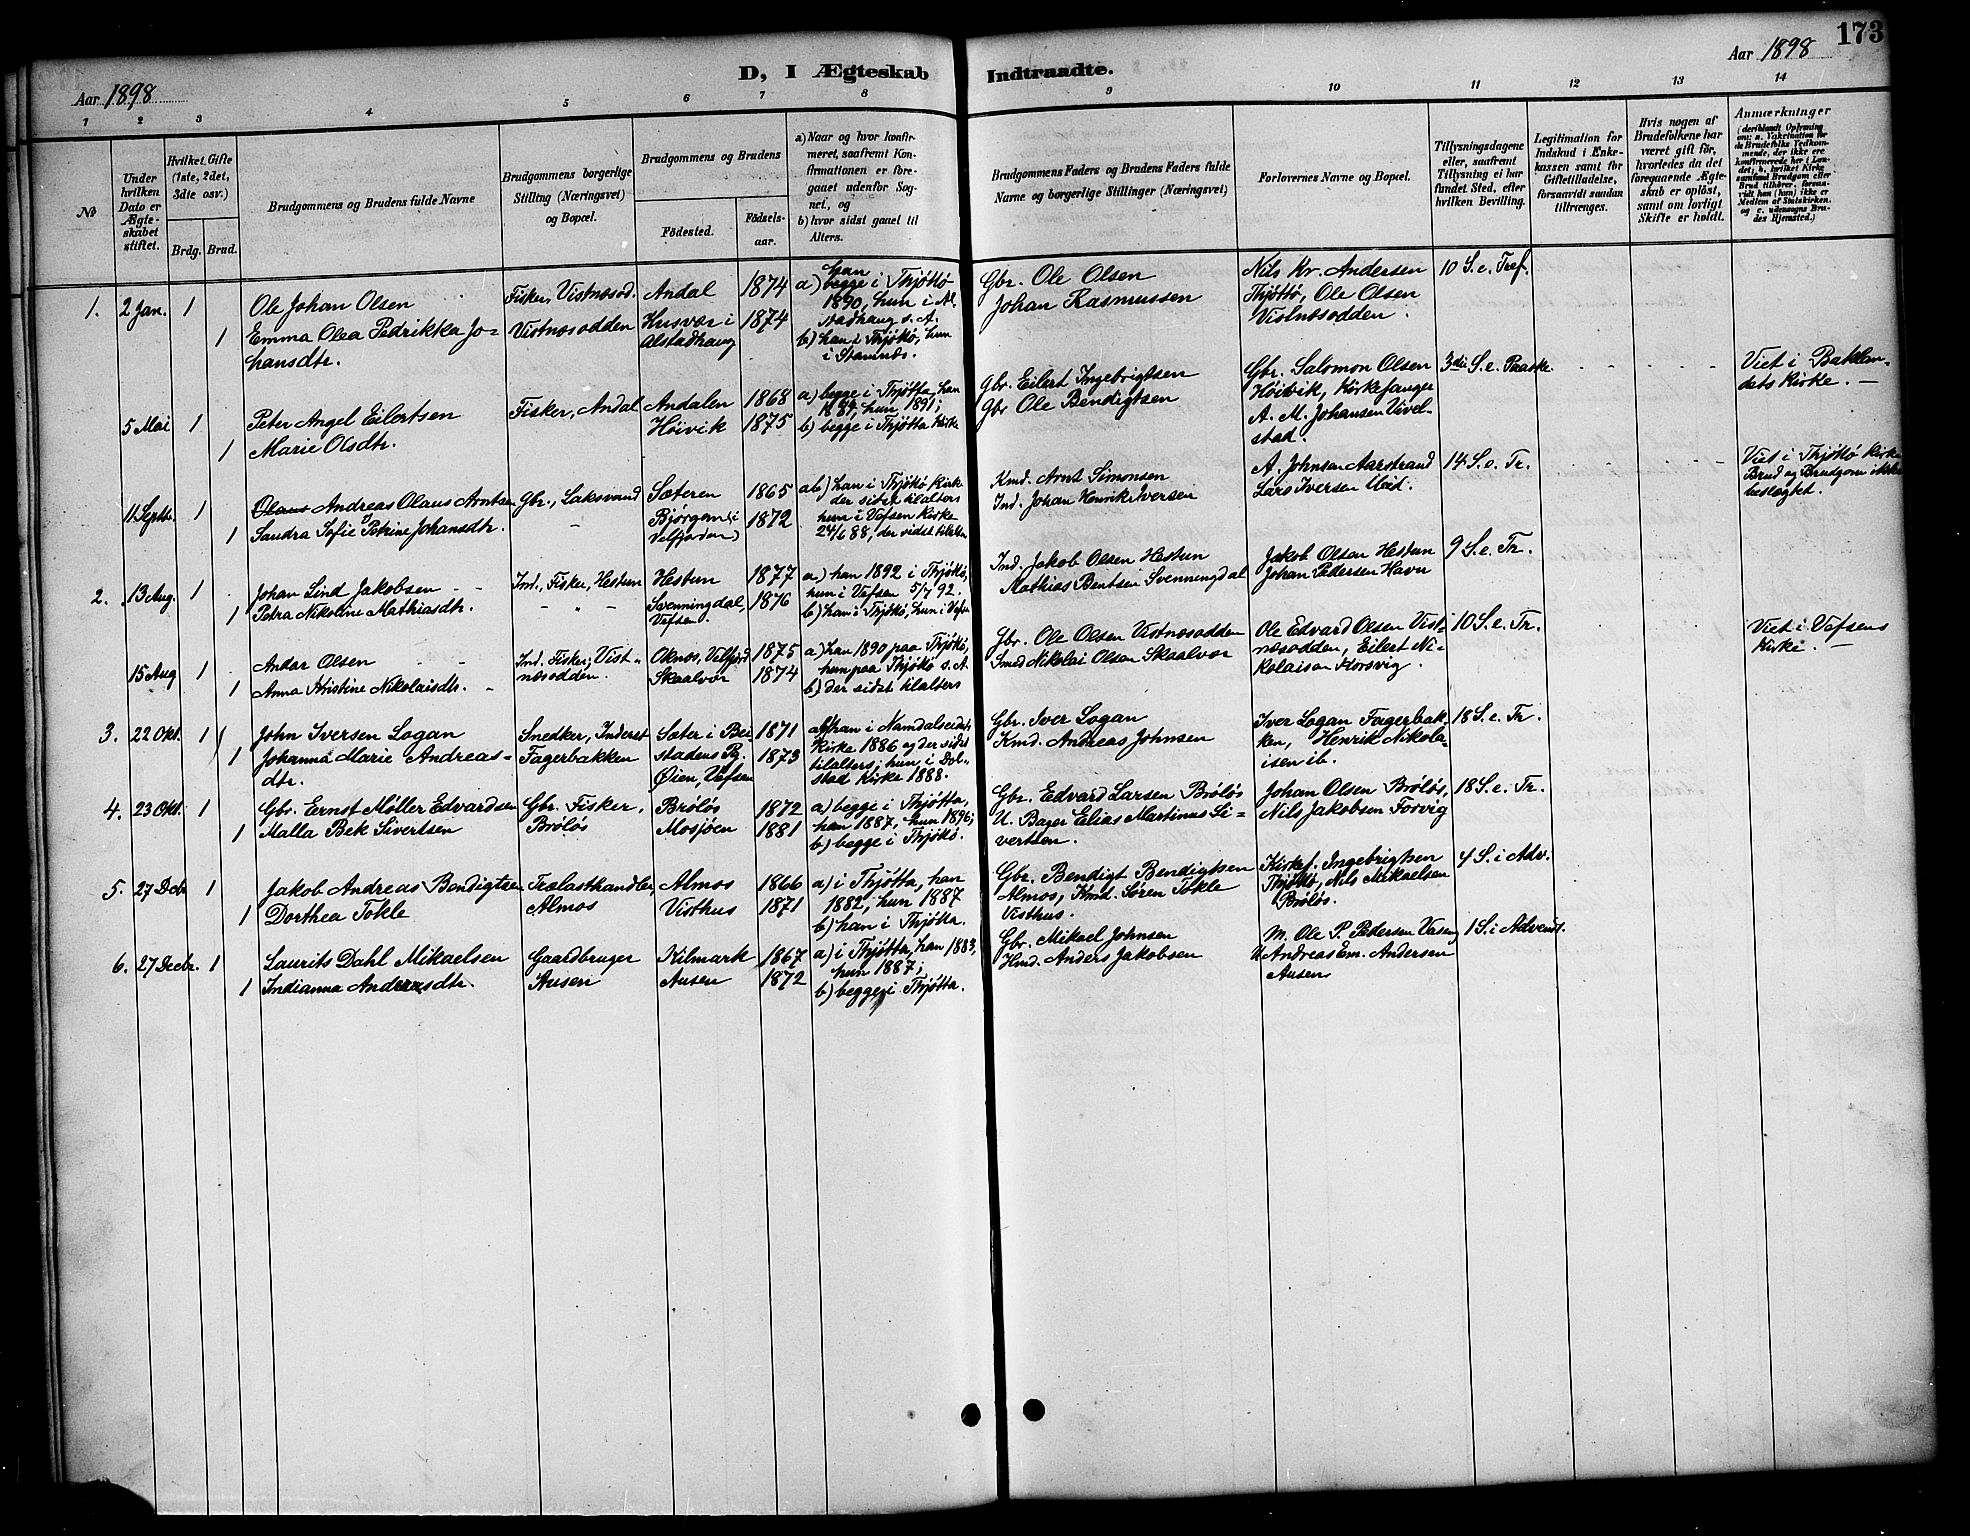 173
Aar 1898
D, I Ægteskab Indtraadte.
Aar 1898
1 2 3 4 5 6 7 8 9 10 11 12 13 14
No
Under hvilken Dato er Ægteskabet stiftet.
Hvilket Gifte (1ste, 2det, 3die osv.)
Brdg. Brud.
Brudgommens og Brudens fulde Navne
Brudgommens borgerlige Stilling (Næringsvei) og Bopæl.
Brudgommens og Brudens
Födested.
Födsels-aar.
a) Naar og hvor konfirmeret, saafremt Konfirmationen er foregaaet udenfor Sognet, og
b) hvor sidst gaaet til Alters.
Brudgommens Faders og Brudens Faders fulde Navne og borgerlige Stillinger (Næringsvei)
Forlovernes Navne og Bopæl.
Tillysningsdagene eller, saafremt Tillysning ei har fundet Sted, efter hvilken Bevilling.
Legitimation for Indskud i Enkekassen samt for Giftetilladelse, forsaavidt saadan tiltrænges.
Hvis nogen af Brudefolkene har været gift för, hvorledes da det foregaaende Ægteskab er oplöst, samt om lovligt Skifte er holdt.
Anmærkninger
1. 2 Jan. 1 Ole Johan Olsen Fisker, Vistnæsod. Andal 1874
1 Emma Olea Pedrikka Jo-
hansdtr. Vistnæsodden Husvær i Alstadhaug 1874
a) han begge i Thjøttø
1890, hun i Al-
stadhaug s. A.
b) han i Thjøttø, hun
i Stamnes.
Gbr. Ole Olsen
Johan Rasmussen
Nils Kr. Andersen
Thjøttø, Ole Olsen
Vistnæsodden.
10 S. e. Tref.
5 Mai 1 Peter Angel Eilertsen Fisker, Andal Andalen 1868
1 Marie Olsdtr. Høivik 1875
a) begge i Thjøtta, han
1884, hun 1891;
b) begge i Thjøtta Kirke
Gbr. Eilert Ingebrigtsen
Gbr Ole Bendigtsen
Gbr. Salomon Olsen
Høivik, Kirkesanger
A. M. Johansen Vivel-
stad.
3die S. e. Paaske.
Viet i Baklan-
dets Kirke. —
11 Septb. 1 Olaus Andreas Olaus Arntsen Gbr., Laksvand Sæteren 1865
1 Sandra Sofie Petrine Johansdtr. Bjørgan (i
Velfjorden) 1872
ab) han i Thjøttø Kirke
der sidst tilalters
hun i Vefsen Kirke
24/6 88, der sidst tilalters
Kmd. Arnt Simonsen
Ind. Johan Henrik Iversen
A. Johnsen Aarstrand
Lars Iversen Ueid.
14 S. e. Tr.
Viet i Thjøttø Kirke
Brud og Brudgom ikke
beslægtet.
2. 13 Aug. 1 Johan Lind Jakobsen Ind. Fisker, Hestun Hestun 1877
1 Petra Nikoline Mathiasdtr. Svenningdal,
Vefsen. 1876
a) han 1892 i Thjøttø,
hun i Vefsen 5/7 92.
b) han i Thjøttø, hun i Vefsn
Ind. Jakob Olsen Hestun
Mathias Bentsen Svenningdal
Jakob Olsen Hestun
Johan Pedersen Havn
9 S. e. Tr.
15 Aug 1 Andor Olsen Ind. Fisker, Vist-
næsodden. Oknes, Velfjord 1875
1 Anna Kristine Nikolaisdtr. Skaalvær 1874
a) han 1890 paa Thjøttø,
hun paa Thjøttø s. A
b) der sidst tilalters
Gbr. Ole Olsen Vistnæsodden
Smed Nikolai Olsen Skaalvær
Ole Edvard Olsen Vist-
næsodden, Eilert Ni-
kolaisen Forsvig.
10 S. e. Tr.
Viet i Vefsens
Kirke. —
3. 22 Okt. 1 John Iversen Logan Snedker, Inderst Sæter i Bei- 1871
1 Johanna Marie Andreas-
dtr. Fagerbakken stadens Pg.
Øien, Vefsen 1873
ab) han i Namdalseidets
Kirke 1886 og der sidst
tilalters; hun i Dol-
stad Kirke 1888.
Gbr. Iver Logan
Kmd. Andreas Johnsen
Iver Logan Fagerbak-
ken, Henrik Nikola-
isen ib.
18 S. e. Tr.
4. 23 Okt. 1 Gbr. Ernst Møller Edvardsen Gbr. Fisker, Brøløs 1872
1 Malla Bek Sivertsen Brøløs Mosjøen 1881
a) begge i Thjøtta,
han 1887, hun 1896;
b) begge i Thjøttø.
Gbr. Edvard Larsen Brøløs
U. Bager Elias Martinus Si-
vertsen.
Johan Olsen Brøløs,
Nils Jakobsen Forvig
18 S. e. Tr.
5. 27 Dcb 1 Jakob Andreas Bendigtsen Trælasthandler, Almos 1866
1 Dorthea Tokle Almos Visthus 1871
a) i Thjøtta, han
1882, hun 1887
b) han i Thjøtta.
Gbr. Bendigt Bendigtsen
Almos, Hmd. Søren Tokle
Visthus.
Kirkes. Ingebrigtsen
Thjøttø, Nils Mikaelsen
Brøløs.
4 S. i Adv.
6. 27 Decbr. 1 Laurits Dahl Mikaelsen Gaardbruger Kilmark 1867
1 Indianna Andreasdtr. Ausen Ausen 1872
a) i Thjøtta, han 1883,
hun 1887;
b) begge i Thjøtta.
Gbr. Mikael Johnsen
Hmd. Anders Jakobsen
M. Ole P. Pedersen Vaseng
U. Andreas Em. Andersen
Ausen
1 S. i Advent.